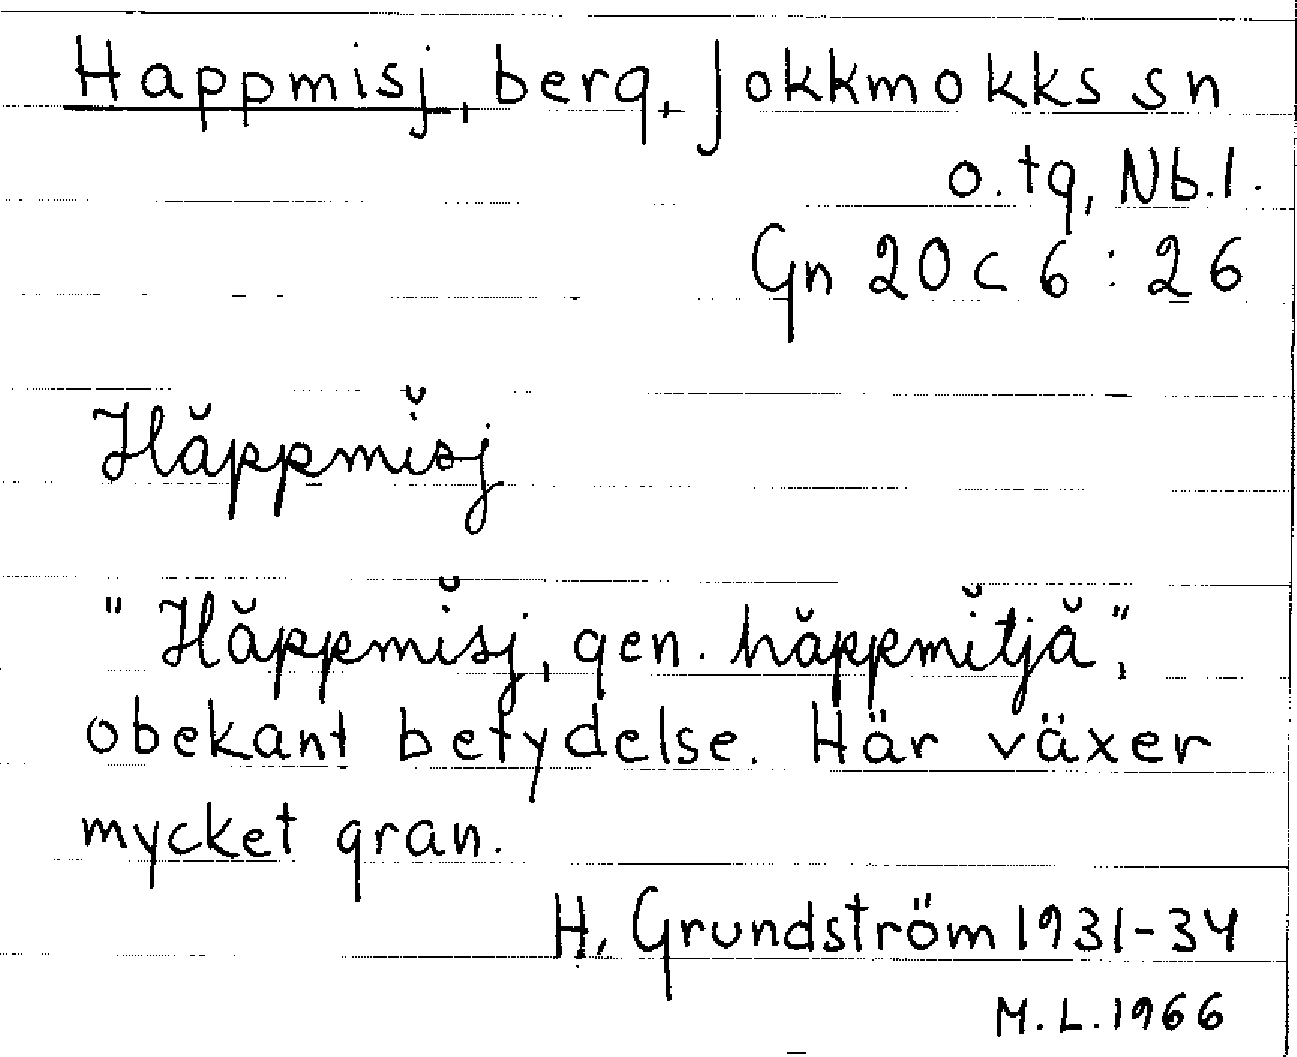 Happmisj, berg, Jokkmokks sn
o. tg, Nb. l.
Gn 20 c 6 : 26
Hăppmĭsj
"Hăppmĭsj, gen. hăppmĭtjă",
obekant betydelse. Här växer
mycket gran.
H. Grundström 1931-34
M. L. 1966